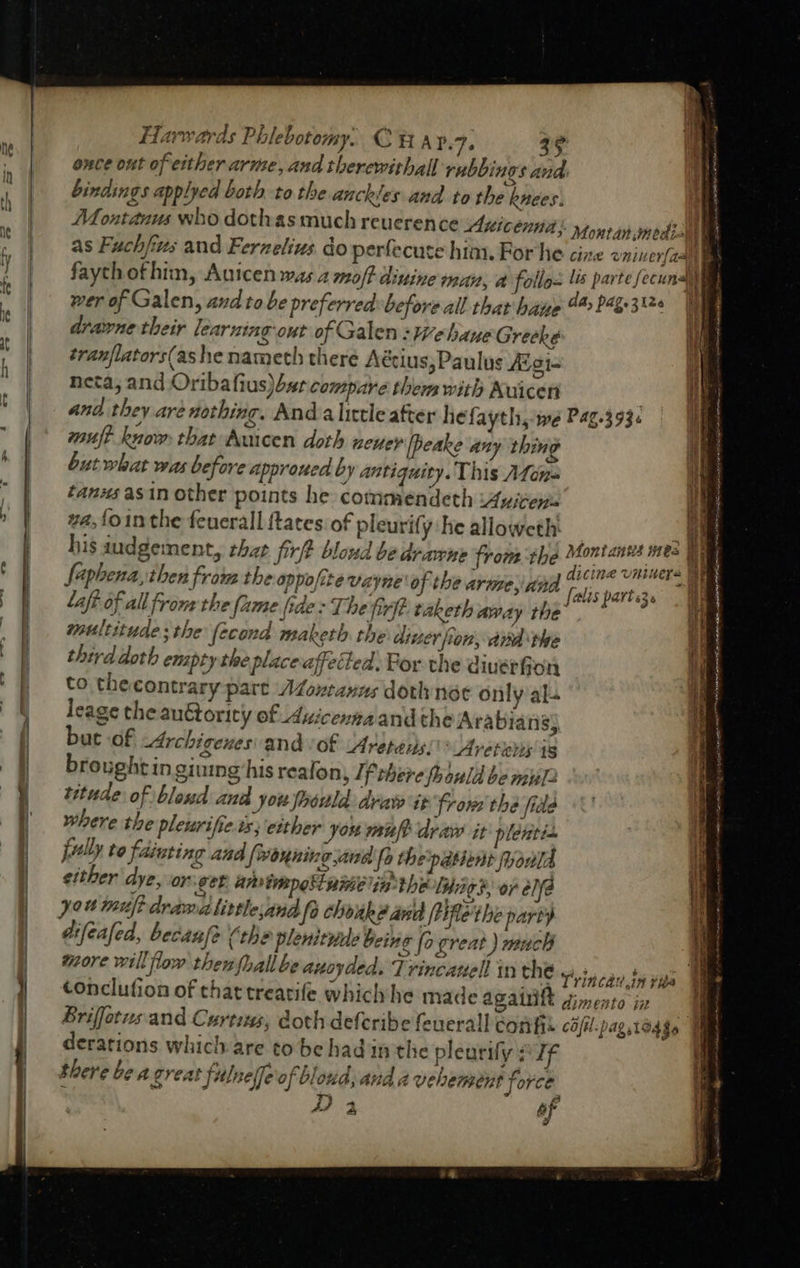 Harwards Phlebotomy. CHAP.7. 35
once out of either arme, and therewithall rubbings and
bindings applyed both to the anckles and to the knees.
Montanus who doth as much reuerence Auicenna,
as Fuchsius and Fernelius do persecute him. For he
fayth of him, Auicen was a most diuine man, a follo-
wer of Galen, and to be preferred before all that haue
drawne their learning out of Galen : We haue Greeke
translators (as he nameth there Aëtius, Paulus Ægi-
neta, and Oribasius) but compare them with Auicen
and they are nothing. And a little after he sayth, we
must know that Auicen doth neuer speake any thing
but what was before approued by antiquity. This Mon-
tanus as in other points he commendeth Auicen-
na, so in the seuerall states of pleurisy he alloweth
his iudgement, that first bloud be drawne from the
saphena, then from the opposite vayne of the arme, and
last of all from the same side : The first taketh away the
multitude ; the second maketh the diuersion, and the
third doth empty the place affected. For the diuersion
to the contrary part Montanus doth not only al-
leage the auctority of Auicenna and the Arabians,
but of Archigenes and of Areteus. Areteus is
brought in giuing his reason, If there should be mul-
titude of bloud and you should draw it from the side
where the pleurisie is, either you must draw it plenti-
fully to fainting and swouning, and so the patient would
either dye, or get an impostume in the lungs, or else
you must draw a little, and so choake and stifle the party
diseased, because (the plenitude being so great) much
more will flow then shall be auoyded. Trincauell in the
conclusion of that treatise which he made against
Brissotus and Curtius, doth describe seuerall consi-
derations which are to be had in the pleurisy : If
there be a great fulnesse of bloud, and a vehement force
D 2 of
Montan. medi-
cinæ vniuersa-
lis parte secun-
da, pag. 312.
Pag. 393.
Montanus me-
dicinæ vniuer-
salis part. 3.
Trincau. in
dimento in
cõsil. pag.